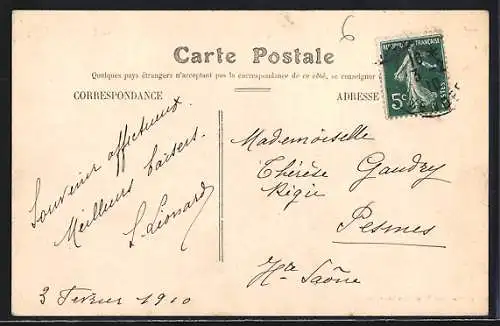 Carte Postale
Quelques pays étrangers n'acceptant pas la correspondance de ce côté, se renseigner
CORRESPONDANCE
ADRESSE
6
FRANÇAISE
5c
Souvenir affectueux.
Meilleurs baisers.
L. Liomard
3 Fevrier 1910
Mademoiselle
Thérèse Gaudry
Régie
Pesmes
Hte Saône